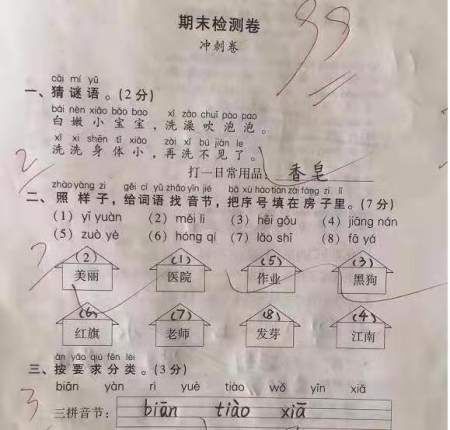 期末检测卷
99
冲刺卷
cāi mí yǔ
一、猜谜语。(2分)
bái nèn xiǎo bǎo bao xǐ zǎo chuī pào pao
白嫩小宝宝，洗澡吹泡泡。
xǐ xi shēn tǐ xiǎo zài xǐ bú jiàn le
洗洗身体小，再洗不见了。
2
打一日常用品 香皂
zhào yàng zi gěi cí yǔ zhǎo yīn jié bǎ xù hào tián zài fáng zi lǐ
二、照样子，给词语找音节，把序号填在房子里。(7分)
(1) yī yuàn (2) měi lì (3) hēi gǒu (4) jiāng nán
(5) zuò yè (6) hóng qí (7) lǎo shī (8) fā yá
7
(2) (1) (5) (3)
美丽 医院 作业 黑狗
(6) (7) (8) (4)
红旗 老师 发芽 江南
àn yāo qiú fēn lèi
三、按要求分类。(3分)
biān yàn rì yuè tiào wǒ yīn xiā
3
三拼音节： biān tiào xiā